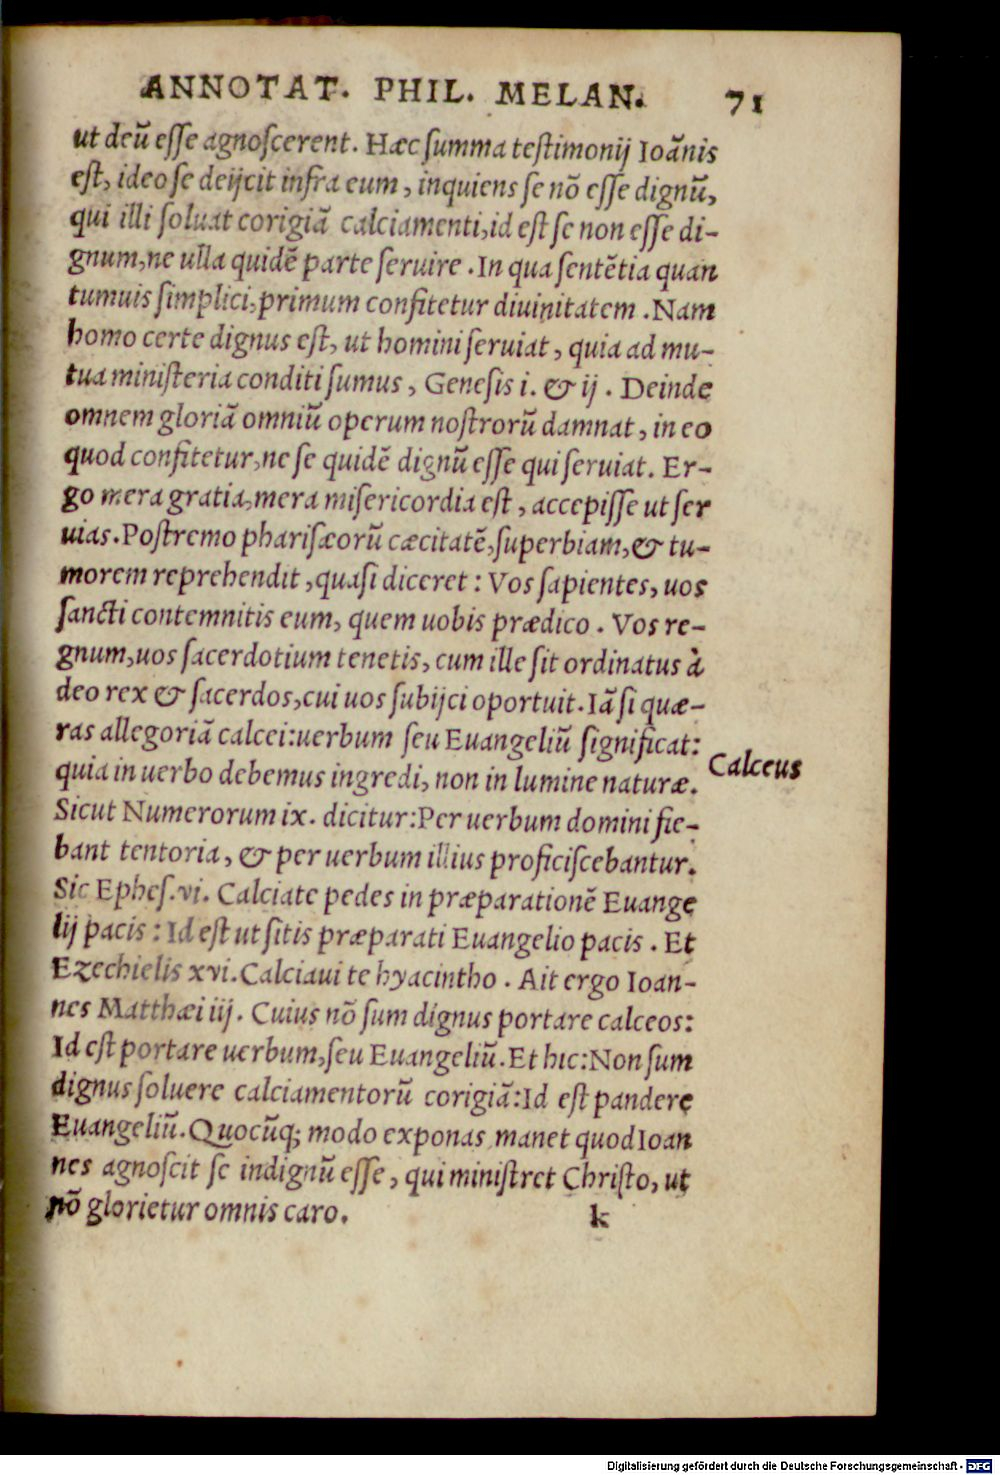 ANNOTAT. PHIL. MELAN. 71
ut deũ eſſe agnoſcerent. Hæc ſumma teſtimonij Ioãnis
eſt, ideo ſe deijcit infra eum, inquiens ſe nõ eſſe dignũ,
qui illi ſoluat corigiã calciamenti, id eſt ſe non eſſe di-
gnum, ne ulla quidẽ parte ſeruire. In qua ſentẽtia quan
tumuis ſimplici, primum confitetur diuinitatem. Nam
homo certe dignus eſt, ut homini ſeruiat, quia ad mu-
tua miniſteria conditi ſumus, Geneſis i. & ij. Deinde
omnem gloriã omniũ operum noſtrorũ damnat, in eo
quod confitetur, ne ſe quidẽ dignũ eſſe qui ſeruiat. Er-
go mera gratia, mera miſericordia eſt, accepiſſe ut ſer
uias. Poſtremo phariſæorũ cæcitatẽ, ſuperbiam, & tu-
morem reprehendit, quaſi diceret: Vos ſapientes, uos
ſancti contemnitis eum, quem uobis prædico. Vos re-
gnum, uos ſacerdotium tenetis, cum ille ſit ordinatus à
deo rex & ſacerdos, cui uos ſubijci oportuit. Iã ſi quæ-
ras allegoriã calcei: uerbum ſeu Euangeliũ ſignificat:
Calceus
quia in uerbo debemus ingredi, non in lumine naturæ.
Sicut Numerorum ix. dicitur: Per uerbum domini fie-
bant tentoria, & per uerbum illius proficiſcebantur.
Sic Epheſ. vi. Calciate pedes in præparationẽ Euange
lij pacis: Id eſt ut ſitis præparati Euangelio pacis. Et
Ezechielis xvi. Calciaui te hyacintho. Ait ergo Ioan-
nes Matthæi iij. Cuius nõ ſum dignus portare calceos:
Id eſt portare uerbum, ſeu Euangeliũ. Et hic: Non ſum
dignus ſoluere calciamentorũ corigiã: Id eſt pandere
Euangeliũ. Quocũq; modo exponas manet quod Ioan
nes agnoſcit ſe indignũ eſſe, qui miniſtret Chriſto, ut
nõ glorietur omnis caro.
k
Digitalisierung gefördert durch die Deutsche Forschungsgemeinschaft - DFG